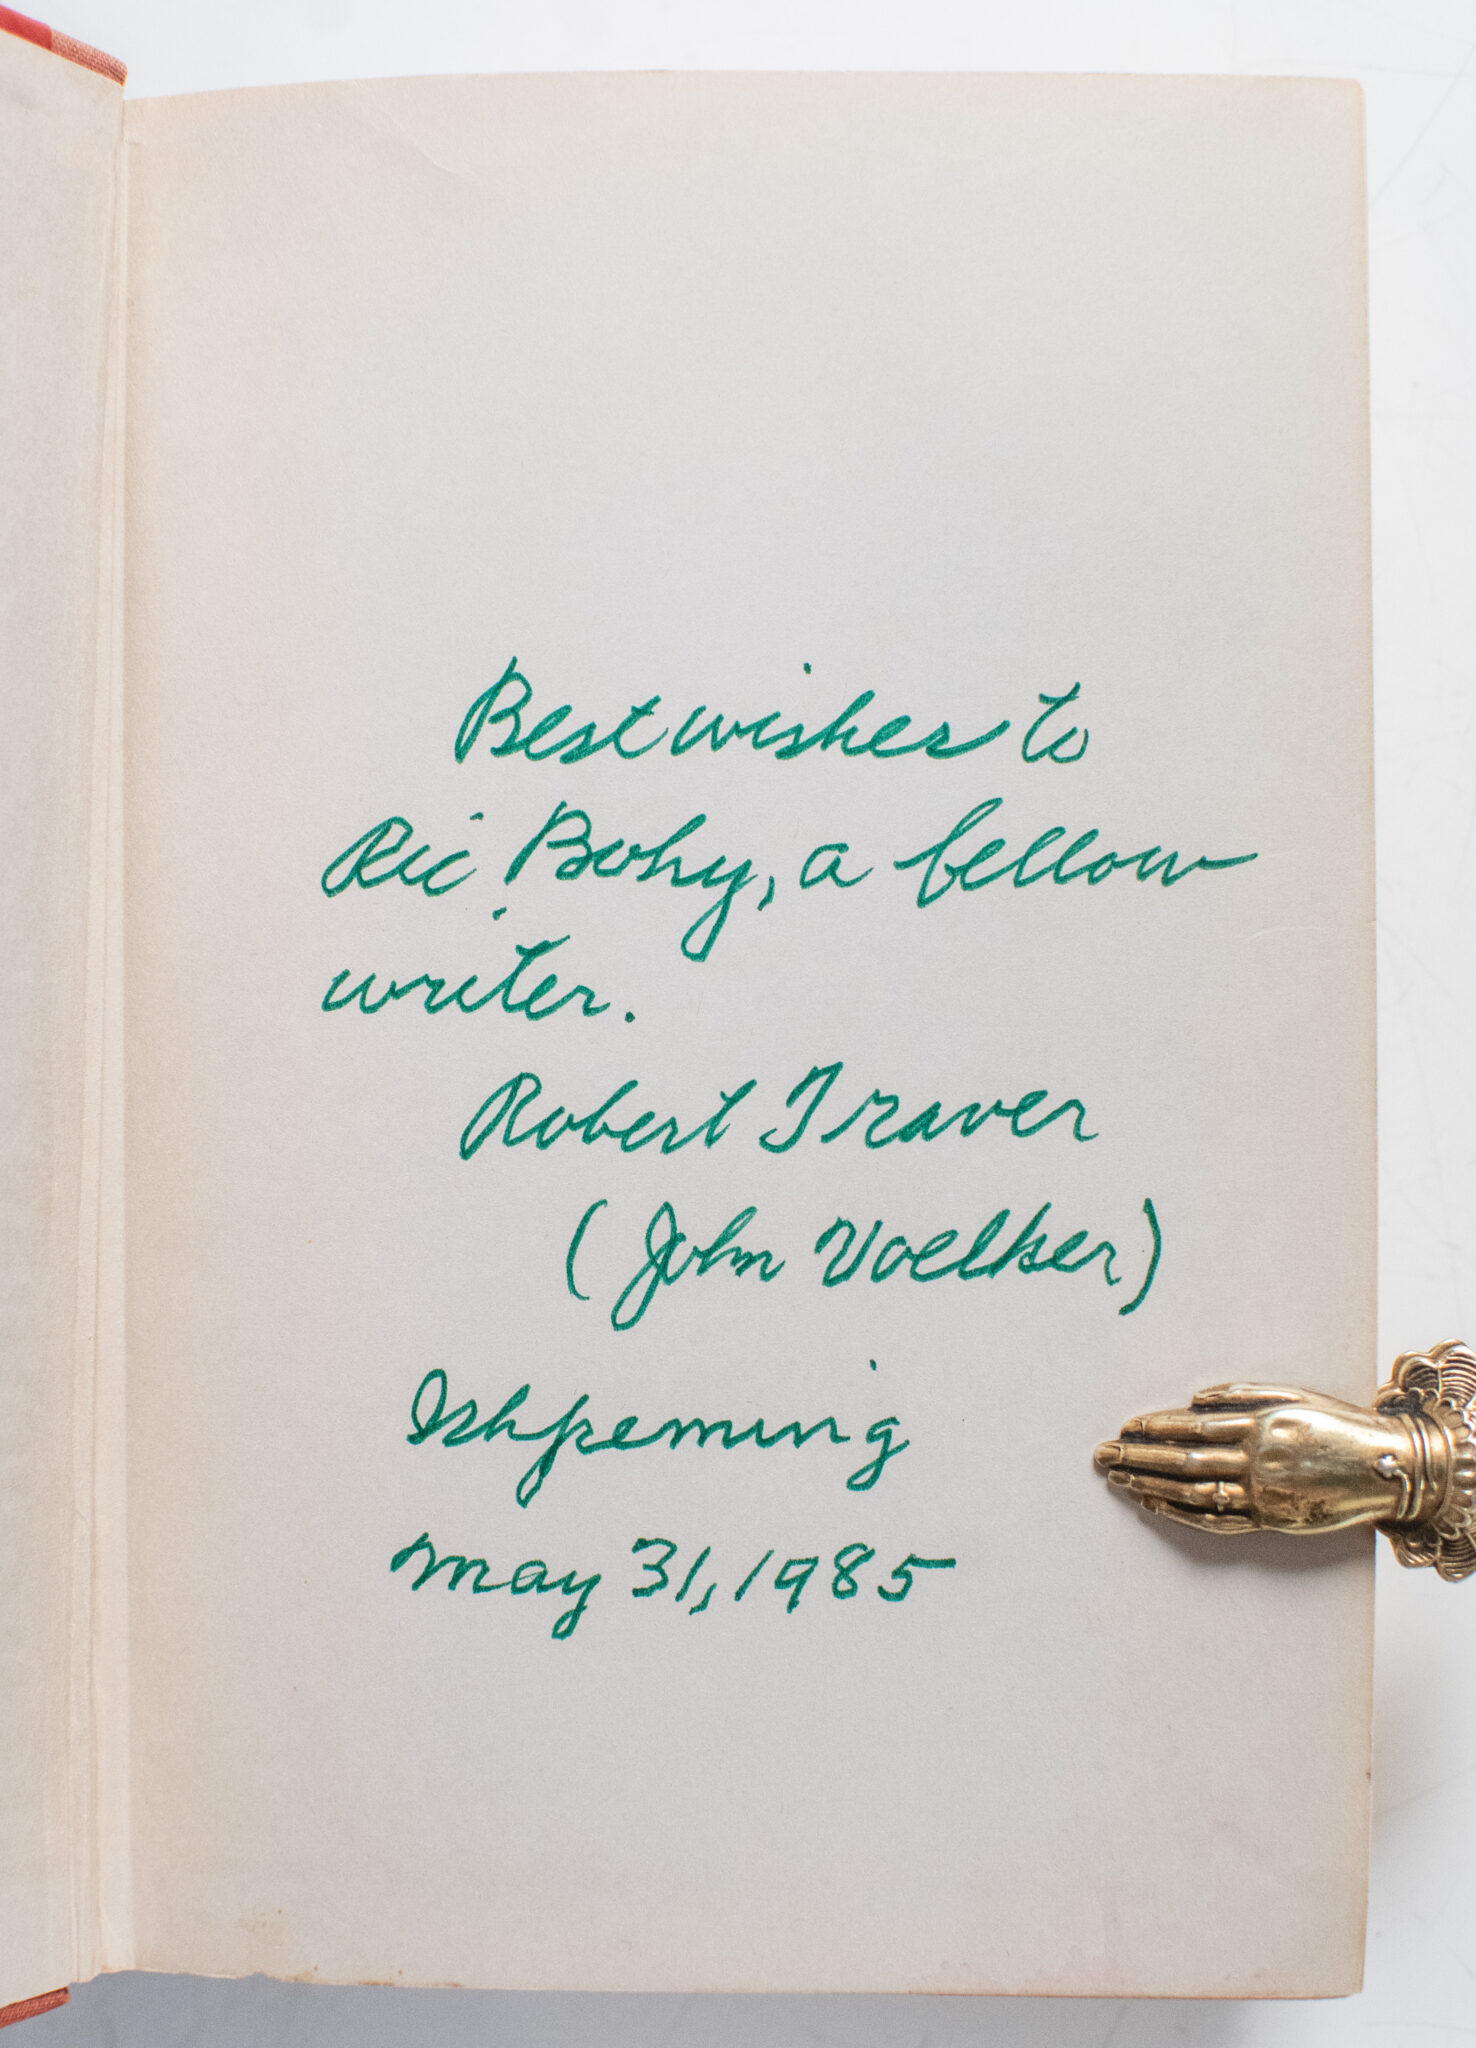 Best wishes to
Ric Bohy, a fellow
writer.
Robert Traver
(John Voelker)
Ishpeming
May 31, 1985